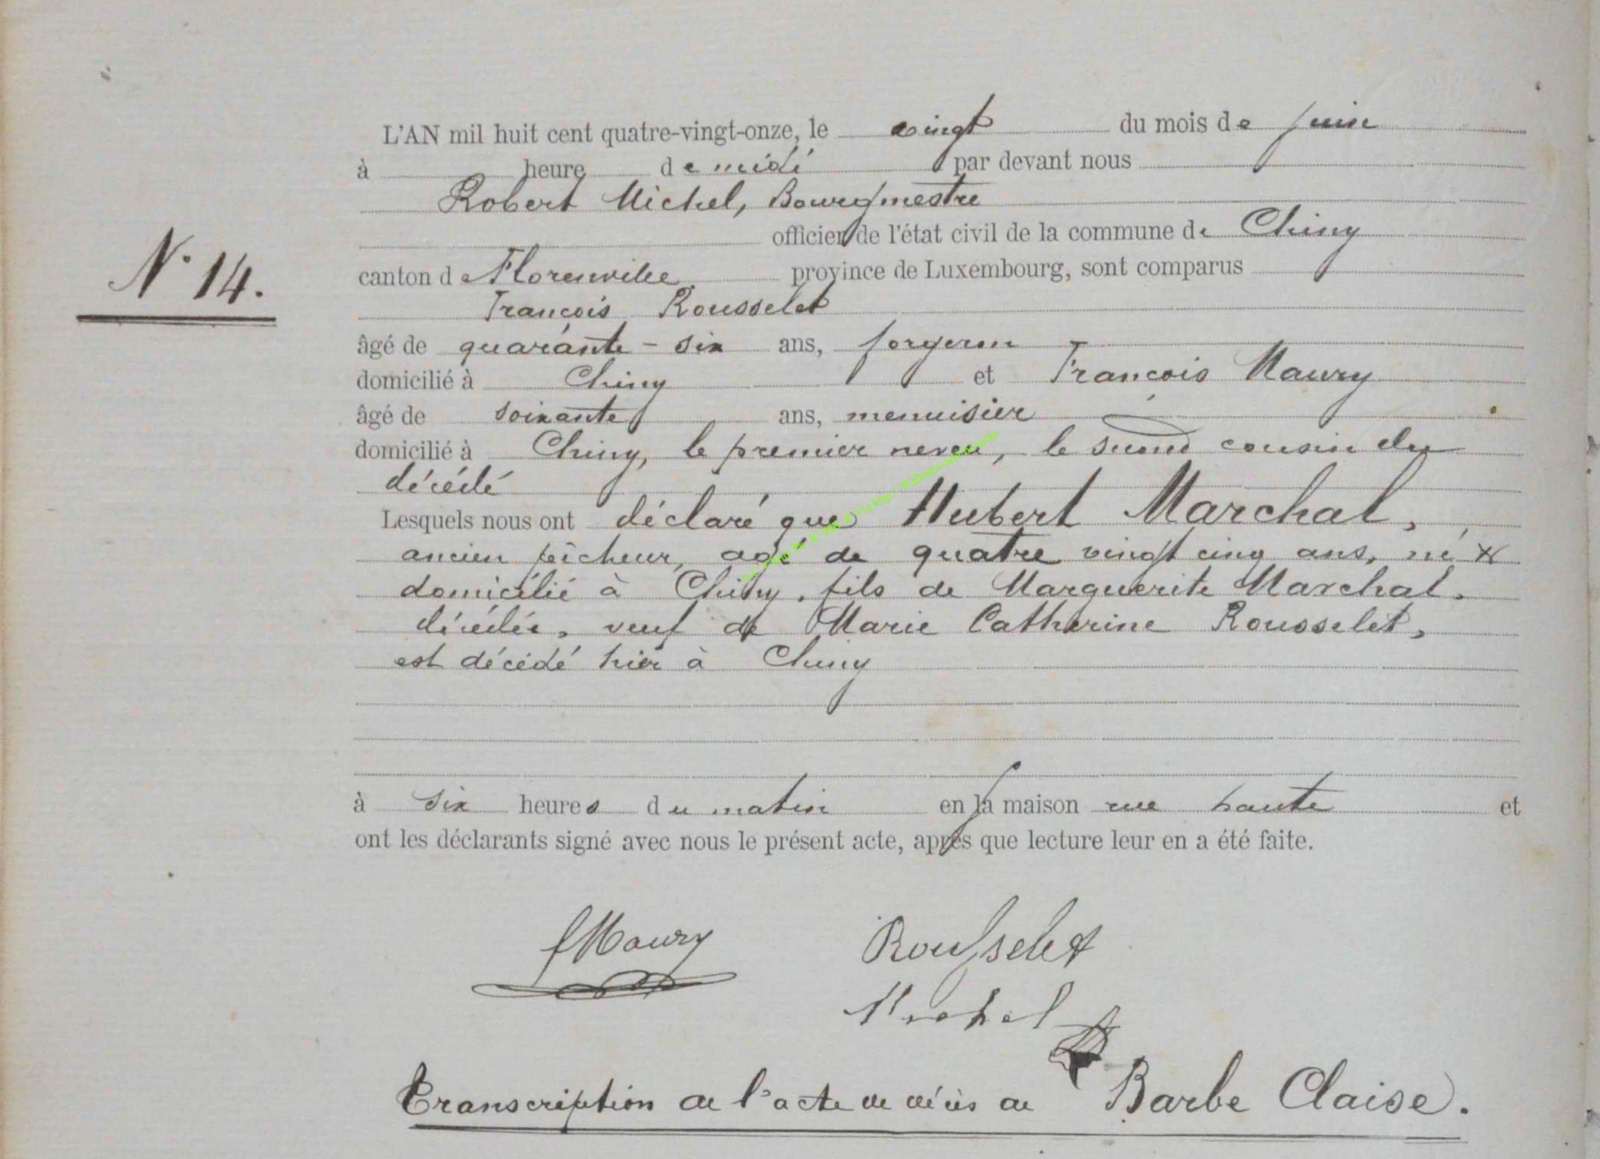 L'AN mil huit cent quatre-vingt-onze, le vingt du mois de juin
à heure de midi par devant nous
Robert Michel, Bourgmestre
officier de l'état civil de la commune de Chiny
N° 14.
canton de Florenville province de Luxembourg, sont comparus
François Rousselet
âgé de quarante-six ans, forgeron
domicilié à Chiny et François Maury
âgé de soixante ans, menuisier
domicilié à Chiny, le premier neveu, le second cousin du
décédé
Lesquels nous ont déclaré que Hubert Marchal,
ancien pêcheur, agé de quatre vingt cinq ans, né &
domicilié à Chiny, fils de Marguerite Marchal,
décédée, veuf de Marie Catherine Rousselet,
est décédé hier à Chiny
à six heures du matin en la maison rue haute et
ont les déclarants signé avec nous le présent acte, après que lecture leur en a été faite.
fMaury Rousselet
Michel
Transcription de l'acte de décès de Barbe Claise.